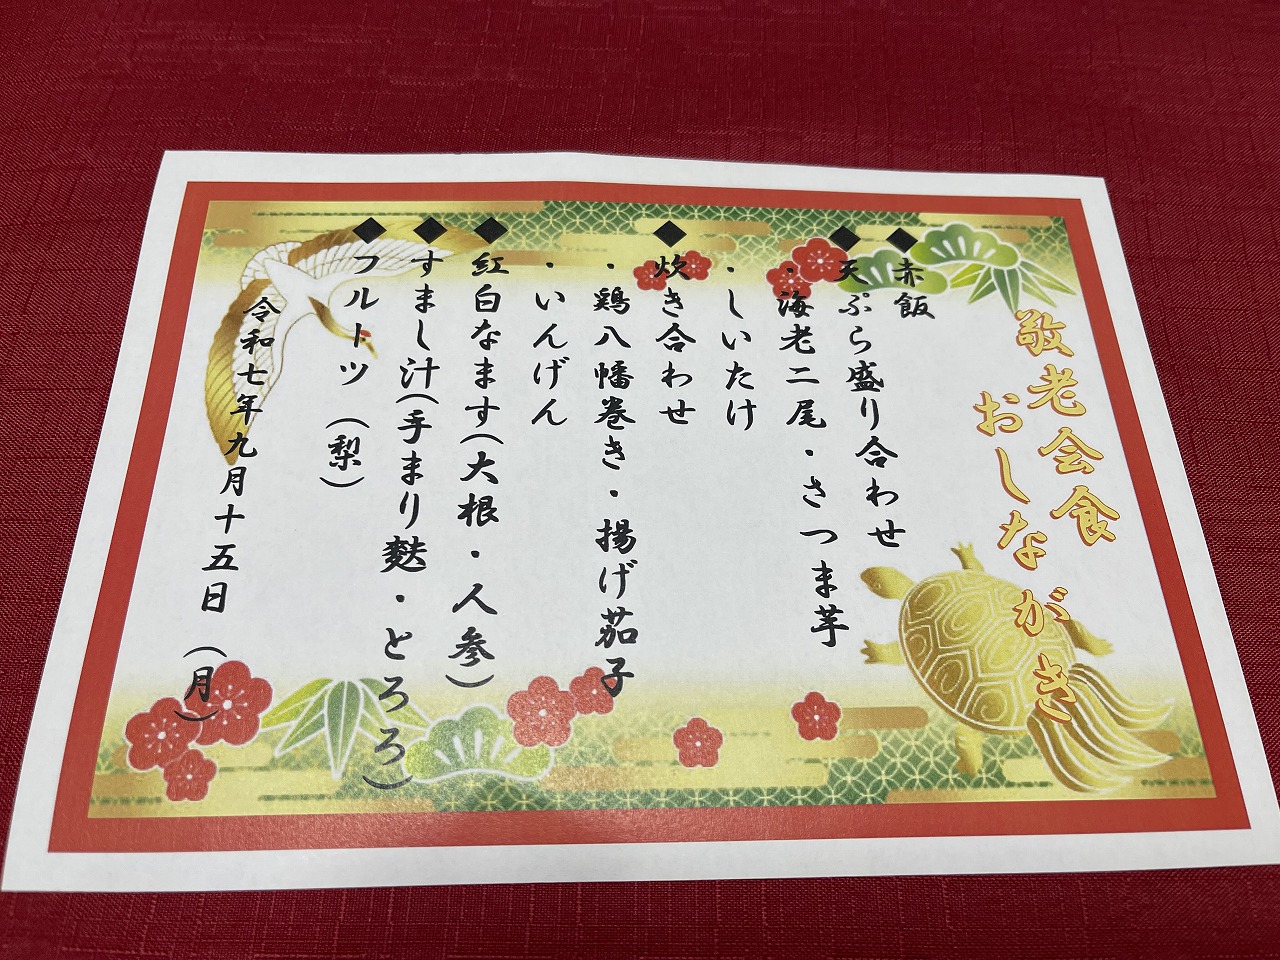 敬老会食
おしながき
◆赤飯
◆天ぷら盛り合わせ
・海老二尾・さつま芋
・しいたけ
◆炊き合わせ
・鶏八幡巻き・揚げ茄子
・いんげん
◆紅白なます(大根・人参)
◆すまし汁(手まり麩・とろろ)
◆フルーツ(梨)
令和七年九月十五日(月)